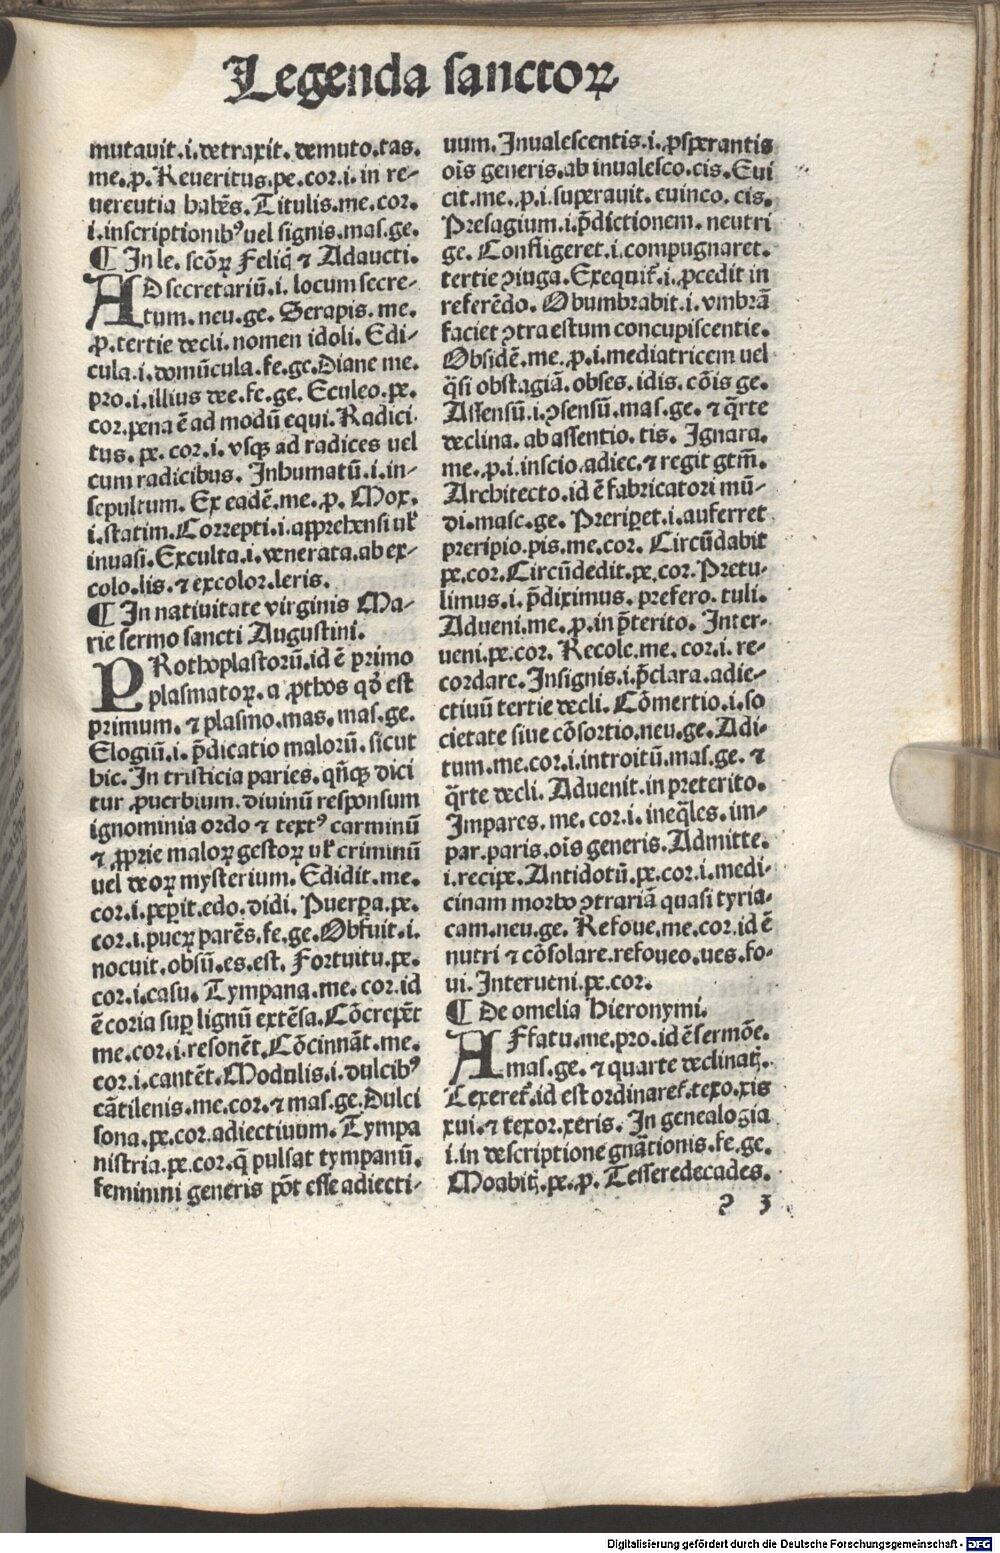 Legenda sanctoꝝ
mutauit.i.detraxit.demuto.tas.
me.ꝓ. Reueritus.pe.cor.i. in re-
uerentia habẽs. Titulis.me.cor.
i.inscriptionibꝰ uel signis.mas.ge.
¶ In le. scõꝝ Feliq̃ ⁊ Adaucti.
AD secretariũ.i. locum secre-
tum. neu.ge. Serapis. me.
ꝓ.tertie decli. nomen idoli. Edi-
cula.i.domũcula.fe.ge.Diane me.
pro.i.illius dee.fe.ge. Eculeo.pe.
cor.pena ẽ ad modũ equi. Radici
tus. pe. cor.i. vsqꝫ ad radices uel
cum radicibus. Inhumatũ.i.in-
sepultum. Ex eadẽ.me.ꝓ. Mox.
i.statim.Correpti.i.apprehensi uł
inuasi.Exculta.i.venerata.ab ex-
colo.lis.⁊ excolor.leris.
¶ In natiuitate virginis Ma-
rie sermo sancti Augustini.
PRothoplastorũ.id ẽ primo
plasmatoꝝ.a ꝓthos qð est
primum.⁊ plasmo.mas.mas.ge.
Elogiũ.i. p̃dicatio malorũ.sicut
hic. In tristicia paries.qñqꝫ dici
tur ꝓuerbium.diuinũ responsum
ignominia ordo ⁊ textꝰ carminũ
⁊ ꝓprie maloꝝ gestoꝝ uł criminũ
uel deoꝝ mysterium. Edidit.me.
cor.i.peꝑit.edo.didi. Puerꝑa.pe.
cor.i.pueꝝ parẽs.fe.ge.Obfuit.i.
nocuit.obsũ.es.est. Fortuitu.pe.
cor.i.casu. Tympana.me. cor.id
ẽ coria suꝑ lignũ extẽsa.Cõcrepẽt
me.cor.i.resonẽt.Cõcinnãt.me.
cor.i.cantẽt.Modulis.i.dulcibꝰ
cãtilenis.me.cor.⁊ mas.ge.Dulci
sona.pe.cor.adiectiuum. Tympa
nistria.pe.cor.q̃ pulsat tympanũ.
feminini generis põt esse adiecti-
uum. Inualescentis.i.ꝓsperantis
oĩs generis.ab inualesco.cis.Eui
cit.me.ꝓ.i.superauit.euinco.cis.
Presagium.i.p̃dictionem.neutri
ge. Confligeret.i.compugnaret.
tertie ꝯiuga. Exequit᷑.i.ꝓcedit in
referẽdo. Obumbrabit.i.vmbrã
faciet ꝯtra estum concupiscentie.
Obsidẽ.me.ꝓ.i.mediatricem uel
q̃si obstagiã.obses.idis.cõis ge.
Assensũ.i.ꝯsensũ.mas.ge.⁊ q̃rte
declina. ab assentio.tis. Ignara.
me.ꝓ.i.inscio.adiec.⁊ regit gtm̃.
Architecto.id ẽ fabricatori mũ-
di.masc.ge. Preriꝑet.i.auferret
preripio.pis.me.cor. Circũdabit
pe.cor.Circũdedit.pe.cor.Pretu-
limus.i.p̃diximus.prefero.tuli.
Adueni.me.ꝓ.in p̃terito. Inter-
ueni.pe.cor. Recole.me.cor.i.re-
cordare.Insignis.i.p̃clara.adie-
ctiuũ tertie decli. Cõmertio.i.so
cietate siue cõsortio.neu.ge.Adi-
tum.me.cor.i.introitũ.mas.ge.⁊
q̃rte decli. Aduenit.in preterito.
Impares.me.cor.i.ineq̃les.im-
par.paris.oĩs generis.Admitte.
i.recipe.Antidotũ.pe.cor.i.medi-
cinam morbo ꝯtrariã quasi tyria-
cam.neu.ge. Refoue.me.cor.id ẽ
nutri ⁊ cõsolare.refoueo.ues.fo-
ui. Interueni.pe.cor.
¶ De omelia Hieronymi.
AFfatu.me.pro.id ẽ sermõe.
mas.ge.⁊ quarte declinatꝭ.
Texeret᷑.id est ordinaret᷑.texo.xis
xui.⁊ texor.xeris. In genealogia
i.in descriptione gnãtionis.fe.ge.
Moabitꝭ.pe.ꝓ. Tesseredecades.
2 3
Digitalisierung gefördert durch die Deutsche Forschungsgemeinschaft - DFG